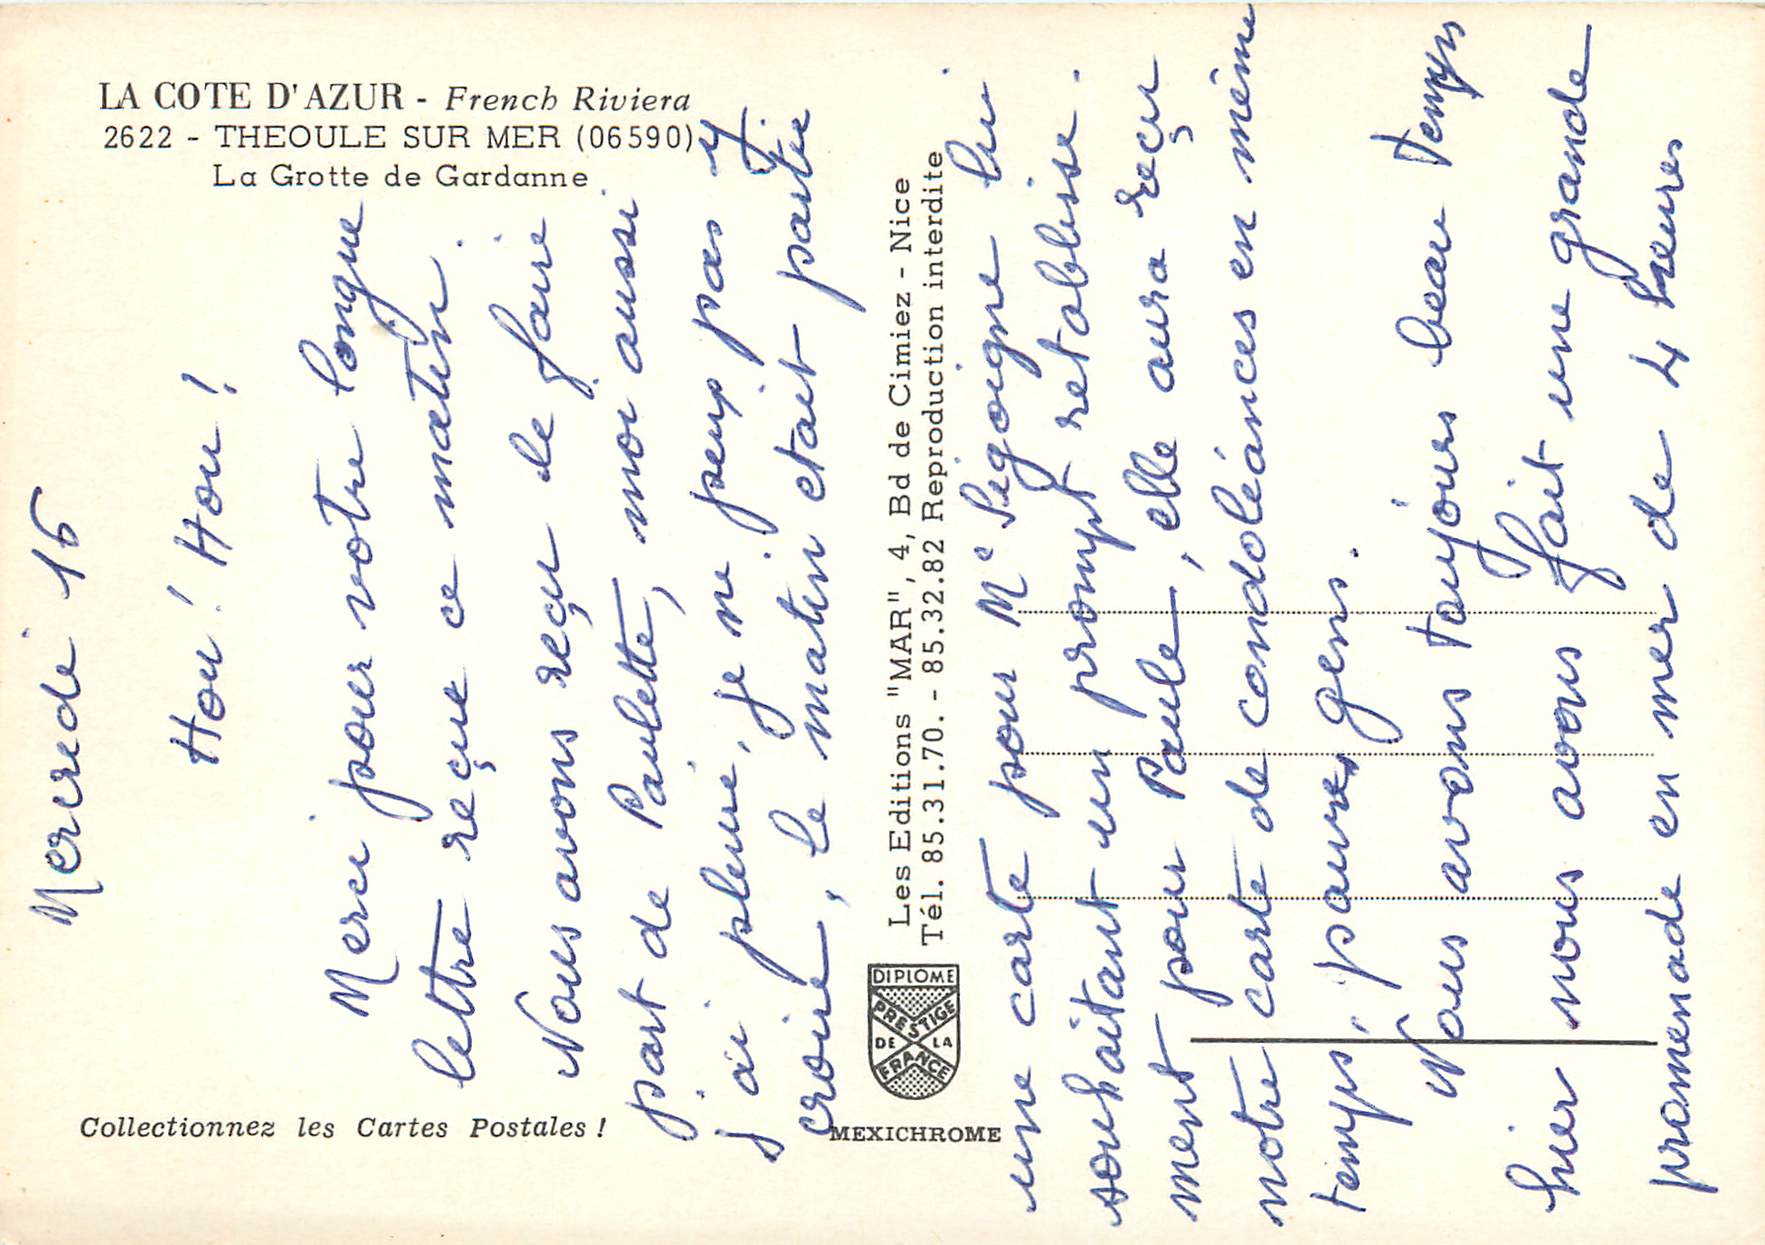 LA COTE D'AZUR - French Riviera
2622 - THEOULE SUR MER (06590)
La Grotte de Gardanne
Mercredi 16
Hou! Hou!
Merci pour votre longue
lettre reçue ce matin.
Nous avons reçu le faire
part de Paulette, moi aussi
j'ai pleuré, je ne peux pas y
croire, le matin etait partie
une carte pour Me Segoigne lui
souhaitant un prompt retablisse.
ment pour Paule, elle aura reçu
notre carte de condoléances en même
temps, pauvres gens.
Nous avons toujours beau temps
hier nous avons fait une grande
promenade en mer de 4 heures
Les Editions "MAR", 4, Bd de Cimiez - Nice
Tél. 85.31.70. - 85.32.82 Reproduction interdite
DIPLOME
PRESTIGE
DE LA
FRANCE
Collectionnez les Cartes Postales !
MEXICHROME